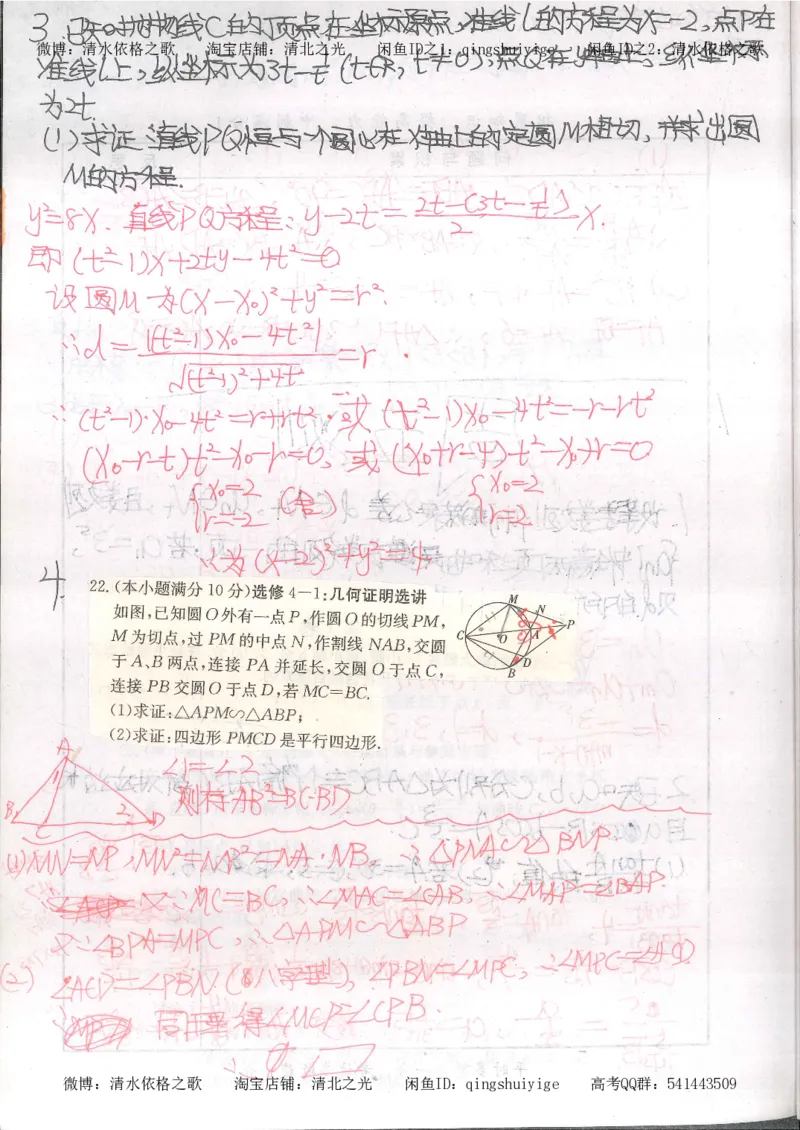 3. 已知抛物线C的顶点在坐标原点,准线l的方程为x=-2,点P在
微博:清水依格之歌 淘宝店铺:清北之光 闲鱼ID之1:qingshuiyige 闲鱼ID之2:清水依格之歌
准线l上,纵坐标为3t-1/t (t∈R, t≠0),点Q在y轴上,纵坐标
为2t.
(1)求证:直线PQ恒与一个圆心在x轴上的定圆M相切,并求出圆
M的方程.
y²=8x. 直线PQ方程: y-2t=(2t-(3t-1/t))/2 x.
即 (t²-1)x+2ty-4t²=0
设圆M为(x-x₀)²+y²=r².
∴d=|(t²-1)x₀-4t²|/√((t²-1)²+4t²)=r.
∴(t²-1)·x₀-4t²=r+rt². 或 (t²-1)x₀-4t²=-r-rt²
(x₀-r-t)t²-x₀-r=0, 或 (x₀+r-4)t²-x₀+r=0
{x₀=2 (舍) {x₀=2
r=-2 r=2
∴为(x-2)²+y²=4
4.
22.(本小题满分10分)选修4—1:几何证明选讲
如图,已知圆O外有一点P,作圆O的切线PM,
M为切点,过PM的中点N,作割线NAB,交圆
于A、B两点,连接PA并延长,交圆O于点C,
连接PB交圆O于点D,若MC=BC.
(1)求证:△APM∽△ABP;
(2)求证:四边形PMCD是平行四边形.
M N P A O C D B
A 1 2 B C D
∠1=∠2
则有AB²=BC·BD
(1) MN=NP, MN²=NP²=NA·NB, ∴△PNA∽△BNP.
又∵MC=BC, ∴∠MAC=∠CAB, ∴∠MAP=∠BAP.
又∵∠BPA=MPC, ∴△APM∽△ABP
(2) ∠ACD=∠PBN.(8八字型), ∠PBN=∠MPC, ∴∠MPC=∠ACD.
同理得∠MCP=∠CPB.
微博:清水依格之歌 淘宝店铺:清北之光 闲鱼ID:qingshuiyige 高考QQ群:541443509